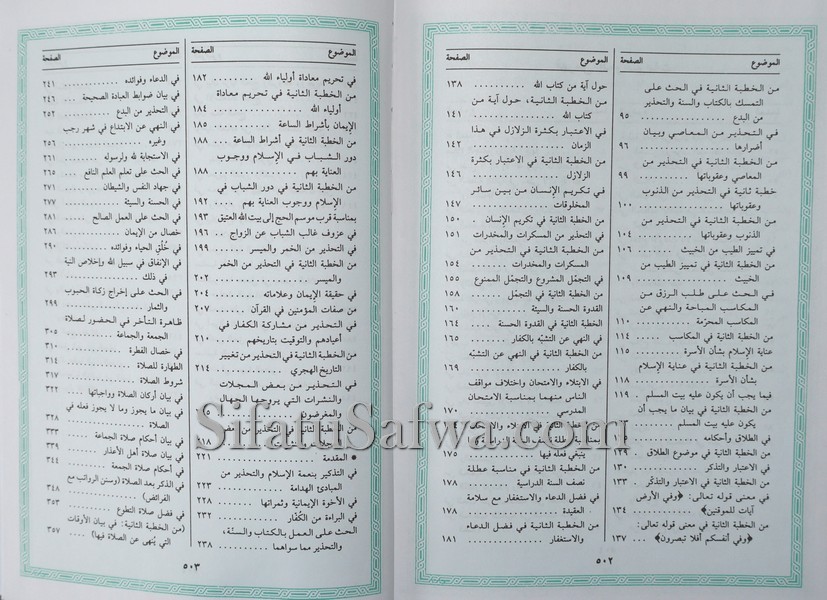 الموضوع الصفحة
من الخطبة الثانية في الحث على
التمسك بالكتاب والسنة والتحذير
من البدع ٩٥
في التحذير من المعاصي وبيان
أضرارها ٩٦
من الخطبة الثانية في التحذير من
المعاصي وعقوباتها ٩٩
خطبة ثانية في التحذير من الذنوب
وعقوباتها ١٠٠
من الخطبة الثانية في التحذير من
الذنوب وعقوباتها ١٠٤
في تمييز الطيب من الخبيث ١٠٦
من الخطبة الثانية في تمييز الطيب من
الخبيث ١٠٩
في الحث على طلب الرزق من
المكاسب المباحة والنهي عن
المكاسب المحرّمة ١١٠
من الخطبة الثانية في المكاسب ١١٤
عناية الإسلام بشأن الأسرة ١١٥
من الخطبة الثانية في عناية الإسلام
بشأن الأسرة ١١٨
فيما يجب أن يكون عليه بيت المسلم ١١٩
من الخطبة الثانية في بيان ما يجب أن
يكون عليه بيت المسلم
في الطلاق وأحكامه
من الخطبة الثانية في موضوع الطلاق ١٢٩
في الاعتبار والتذكر ١٣٠
من الخطبة الثانية في الاعتبار والتذكّر ١٣٣
في معنى قوله تعالى: ﴿وفي الأرض
آيات للموقنين﴾ ١٣٤
من الخطبة الثانية في معنى قوله تعالى:
﴿وفي أنفسكم أفلا تبصرون﴾ ١٣٧
الموضوع الصفحة
حول آية من كتاب الله ١٣٨
من الخطبة الثانية، حول آية من
كتاب الله ١٤١
في الاعتبار بكثرة الزلازل في هذا
الزمان ١٤٢
من الخطبة الثانية في الاعتبار بكثرة
الزلازل ١٤٦
في تكريم الإنسان من بين سائر
المخلوقات ١٤٧
من الخطبة الثانية في تكريم الإنسان ١٥٠
في التحذير من المسكرات والمخدرات ١٥١
من الخطبة الثانية في التحذير من
المسكرات والمخدرات ١٥٤
في التجمّل المشروع والتجمّل الممنوع ١٥٥
من الخطبة الثانية في التجمّل ١٥٨
القدوة الحسنة والسيئة ١٦٠
الخطبة الثانية في القدوة الحسنة ١٦٤
في النهي عن التشبّه بالكفار ١٦٥
من الخطبة الثانية في النهي عن التشبّه
بالكفار ١٦٩
في الابتلاء والامتحان واختلاف مواقف
الناس منهما بمناسبة الامتحان
المدرسي ١٧٠
ينبغي فعله فيها ١٧٥
من الخطبة الثانية في مناسبة عطلة
نصف السنة الدراسية ١٧٨
في فضل الدعاء والاستغفار مع سلامة
العقيدة ١٧٨
من الخطبة الثانية في فضل الدعاء
والاستغفار ١٨١
٥٠٢
الموضوع الصفحة
في تحريم معاداة أولياء الله ١٨٢
من الخطبة الثانية في تحريم معاداة
أولياء الله ١٨٤
الإيمان بأشراط الساعة ١٨٥
من الخطبة الثانية في أشراط الساعة ١٨٨
دور الشباب في الإسلام ووجوب
العناية بهم ١٨٨
من الخطبة الثانية في دور الشباب في
الإسلام ووجوب العناية بهم ١٩٢
بمناسبة قرب موسم الحج إلى بيت الله العتيق ١٩٣
في عزوف غالب الشباب عن الزواج ١٩٦
في التحذير من الخمر والميسر ١٩٩
من الخطبة الثانية في التحذير من الخمر
والميسر ٢٠٢
في حقيقة الإيمان وعلاماته ٢٠٤
من صفات المؤمنين في القرآن ٢٠٧
في التحذير من مشاركة الكفار في
أعيادهم والتوقيت بتاريخهم ٢١٠
من الخطبة الثانية في التحذير من تغيير
التاريخ الهجري ٢١٤
في التحذير من بعض المجلات
والنشرات التي يروجها الجهال
والمغرضون
من الخطبة الثانية في التحذير من بعض
٢١٨
● المقدمة ٢٢١
في التذكير بنعمة الإسلام والتحذير من
المبادئ الهدامة ٢٢٣
في الأخوة الإيمانية وثمراتها ٢٢٨
في البراءة من الكُفّار ٢٣٢
الحث على العمل بالكتاب والسنّة،
والتحذير مما سواهما ٢٣٨
الموضوع الصفحة
في الدعاء وفوائده ٢٤١
في بيان ضوابط العبادة الصحيحة ٢٤٦
في التحذير من البدع ٢٥٢
في النهي عن الابتداع في شهر رجب
وغيره ٢٥٦
في الاستجابة لله ولرسوله ٢٦١
في الحث على تعلم العلم النافع ٢٦٥
في جهاد النفس والشيطان ٢٧١
في الحسنة والسيئة ٢٧٧
في الحث على العمل الصالح ٢٨١
خصال من الإيمان ٢٨٦
في خُلُق الحياء وفوائده ٢٩٠
في الإنفاق في سبيل الله وإخلاص النية
في ذلك ٢٩٣
في الحث على إخراج زكاة الحبوب
والثمار ٢٩٩
ظاهرة التأخر في الحضور لصلاة
الجمعة والجماعة ٣٠٥
في خصال الفطرة ٣١٠
الطهارة للصلاة ٣١٤
شروط الصلاة ٣١٧
في بيان أركان الصلاة وواجباتها ٣٢٢
في بيان ما يجوز وما لا يجوز فعله في
الصلاة ٣٢٨
في بيان أحكام صلاة الجماعة ٣٣٣
في بيان صلاة أهل الأعذار ٣٣٩
في أحكام صلاة الجمعة ٣٤٤
في الذكر بعد الصلاة (وسنن الرواتب مع
الفرائض) ٣٤٨
في فضل صلاة التطوع ٣٥٣
(من الخطبة الثانية: في بيان الأوقات
التي يُنهى عن الصلاة فيها) ٣٥٧
٥٠٣
SifatuSafwa.com